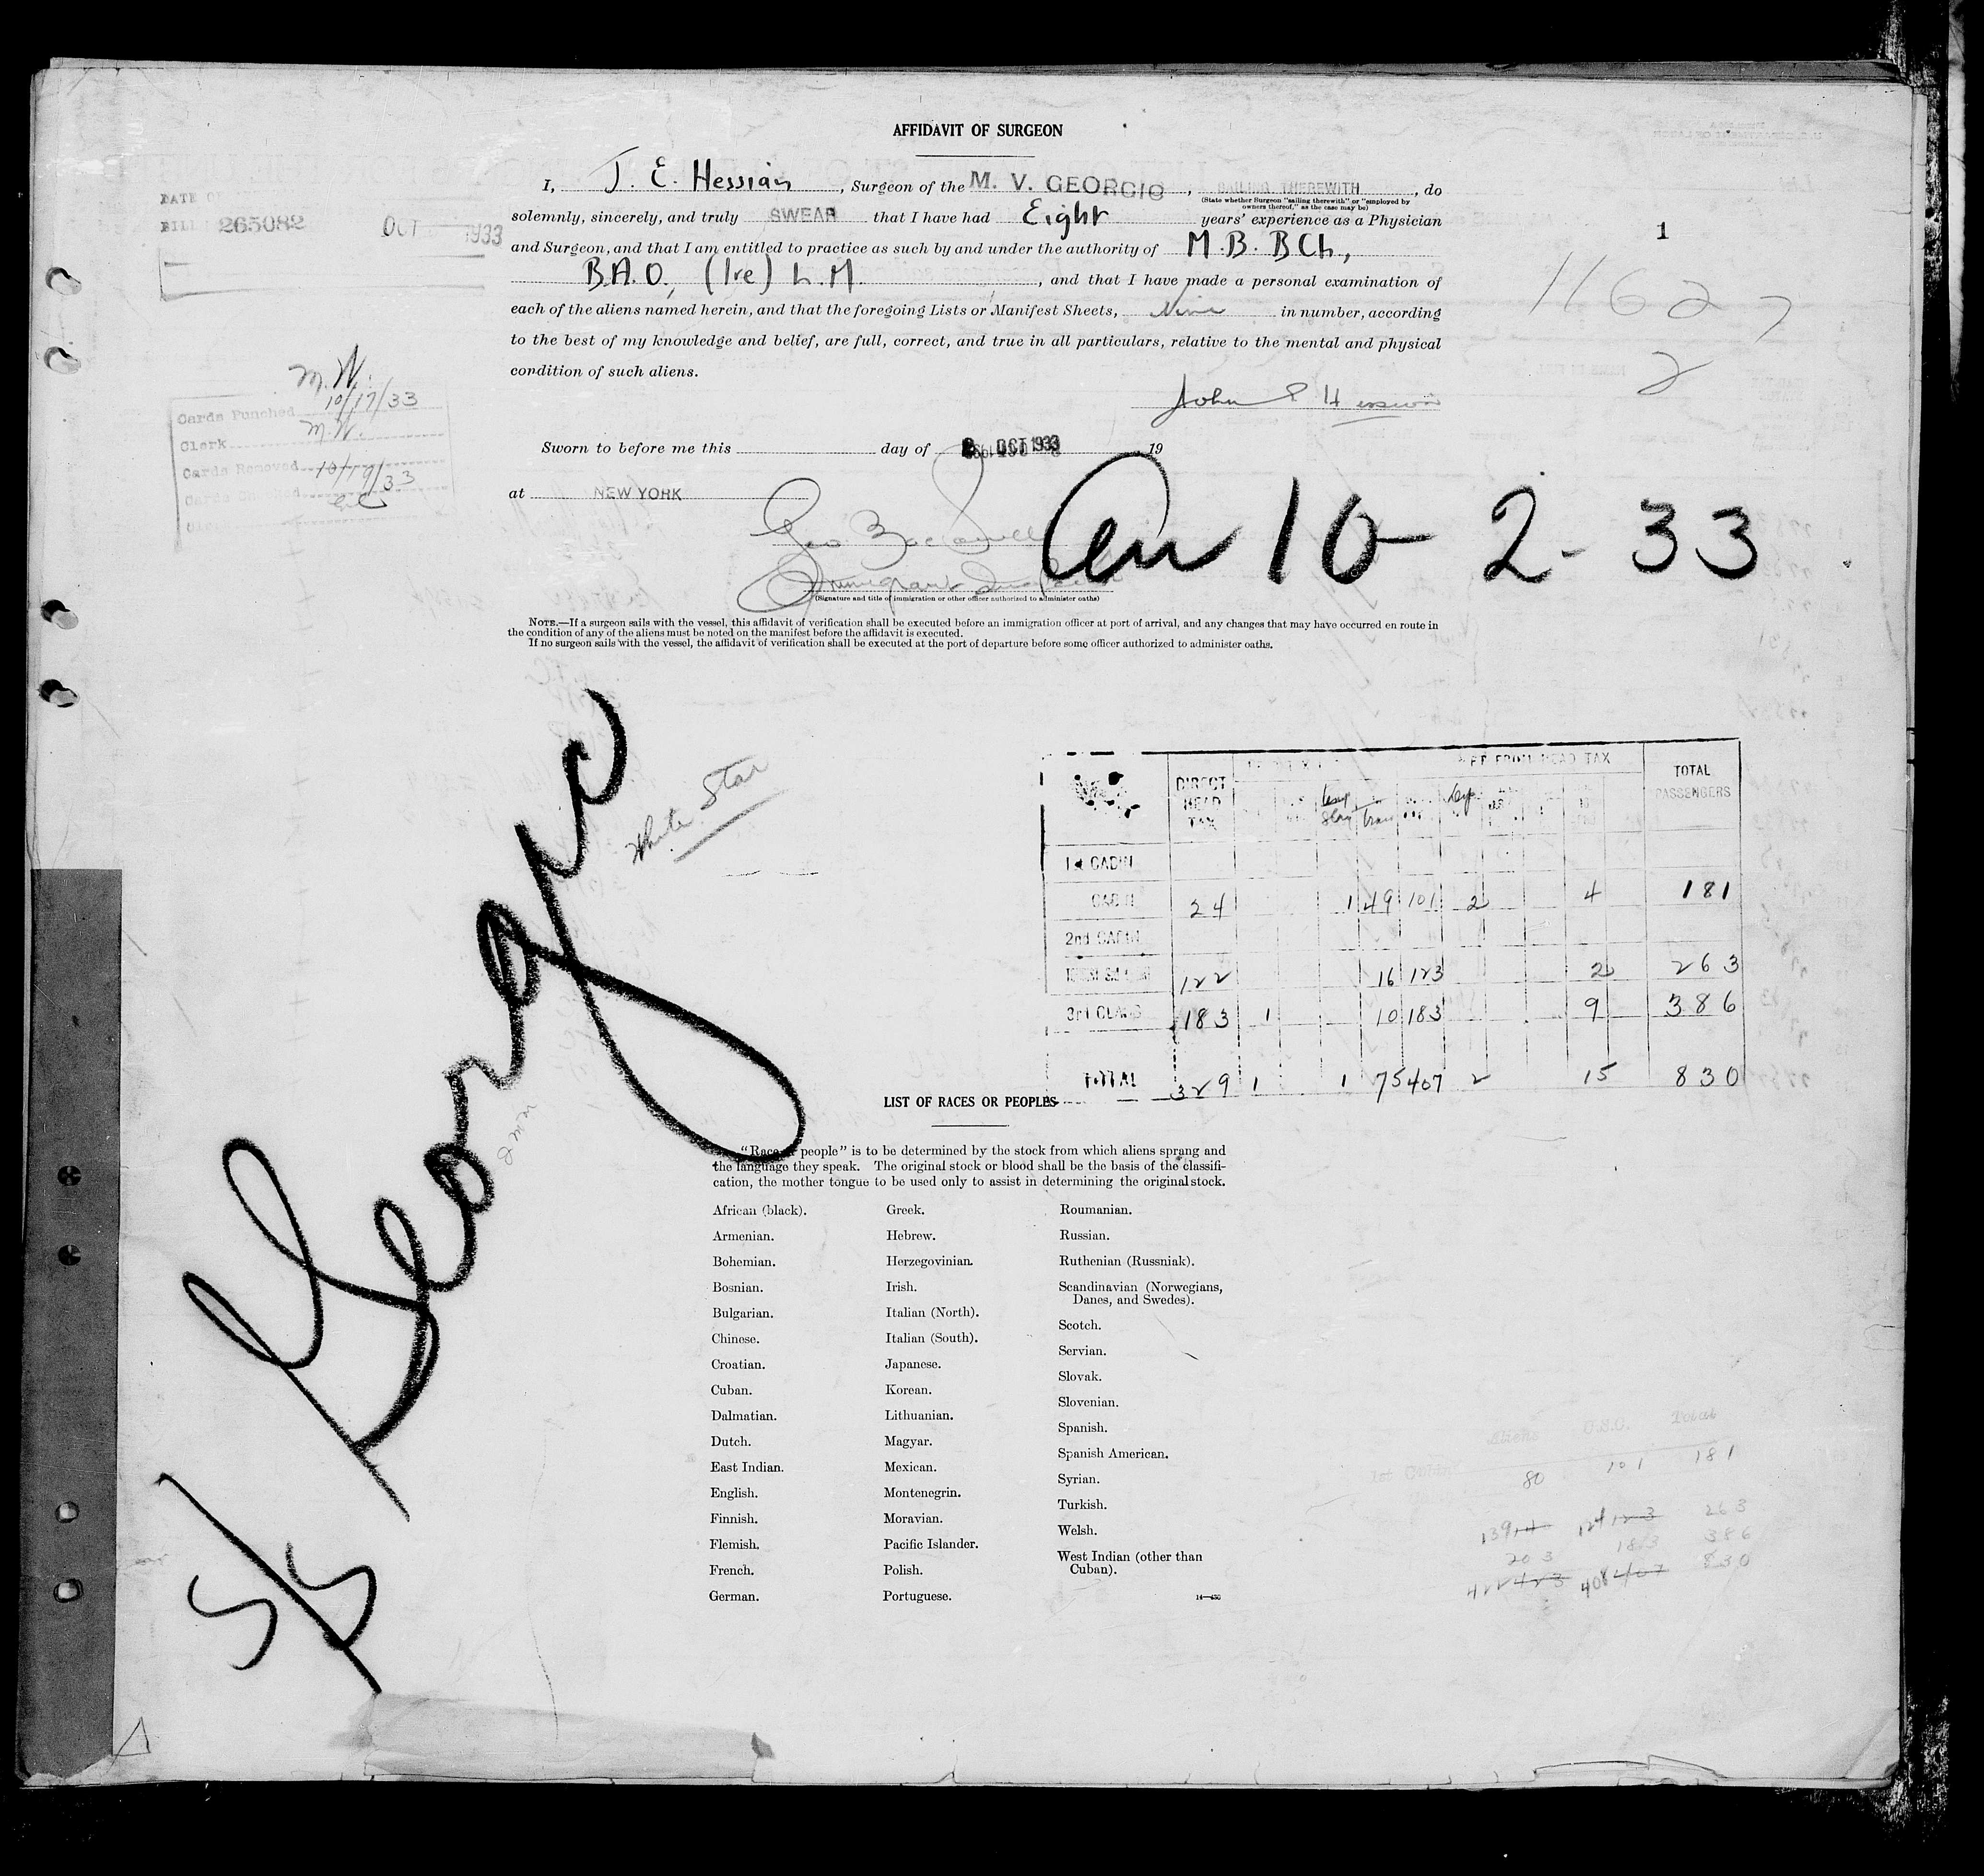 AFFIDAVIT OF SURGEON
I, J. E. Hessian, Surgeon of the M. V. GEORGIC, SAILING THEREWITH, do
(State whether Surgeon "sailing therewith" or "employed by
owners thereof," as the case may be)
solemnly, sincerely, and truly SWEAR that I have had Eight years' experience as a Physician
and Surgeon, and that I am entitled to practice as such by and under the authority of M.B. BCh,
B.A.O., (Ire) L.M. , and that I have made a personal examination of
each of the aliens named herein, and that the foregoing Lists or Manifest Sheets, Nine in number, according
to the best of my knowledge and belief, are full, correct, and true in all particulars, relative to the mental and physical
condition of such aliens.
John E Hessian
DATE OF
BILL 265082 OCT 1933
1
11627
2
M.W.
Cards Punched 10/17/33
Clerk M.W.
Cards Removed 10/19/33
Sworn to before me this day of 2 OCT 1933 19
at NEW YORK
Immigrant Inspector
(Signature and title of immigration or other officer authorized to administer oaths)
Arr 10-2-33
NOTE.—If a surgeon sails with the vessel, this affidavit of verification shall be executed before an immigration officer at port of arrival, and any changes that may have occurred en route in
the condition of any of the aliens must be noted on the manifest before the affidavit is executed.
If no surgeon sails with the vessel, the affidavit of verification shall be executed at the port of departure before some officer authorized to administer oaths.
S/S Georgic
White Star
DIRECT HEAD TAX
HEAD TAX
TOTAL PASSENGERS
CABIN 24 1 49 101 2 4 181
2nd CABIN
122 16 123 2 263
3rd CLASS 183 1 10 183 9 386
TOTAL 329 1 1 75 407 2 15 830
LIST OF RACES OR PEOPLES
"Race or people" is to be determined by the stock from which aliens sprang and
the language they speak. The original stock or blood shall be the basis of the classifi-
cation, the mother tongue to be used only to assist in determining the original stock.
African (black).
Armenian.
Bohemian.
Bosnian.
Bulgarian.
Chinese.
Croatian.
Cuban.
Dalmatian.
Dutch.
East Indian.
English.
Finnish.
Flemish.
French.
German.
Greek.
Hebrew.
Herzegovinian.
Irish.
Italian (North).
Italian (South).
Japanese.
Korean.
Lithuanian.
Magyar.
Mexican.
Montenegrin.
Moravian.
Pacific Islander.
Polish.
Portuguese.
Roumanian.
Russian.
Ruthenian (Russniak).
Scandinavian (Norwegians,
Danes, and Swedes).
Scotch.
Servian.
Slovak.
Slovenian.
Spanish.
Spanish American.
Syrian.
Turkish.
Welsh.
West Indian (other than
Cuban).
Aliens U.S.C. Total
1st Cabin 80 101 181
139 124 123 263
203 183 386
422 423 408 407 830